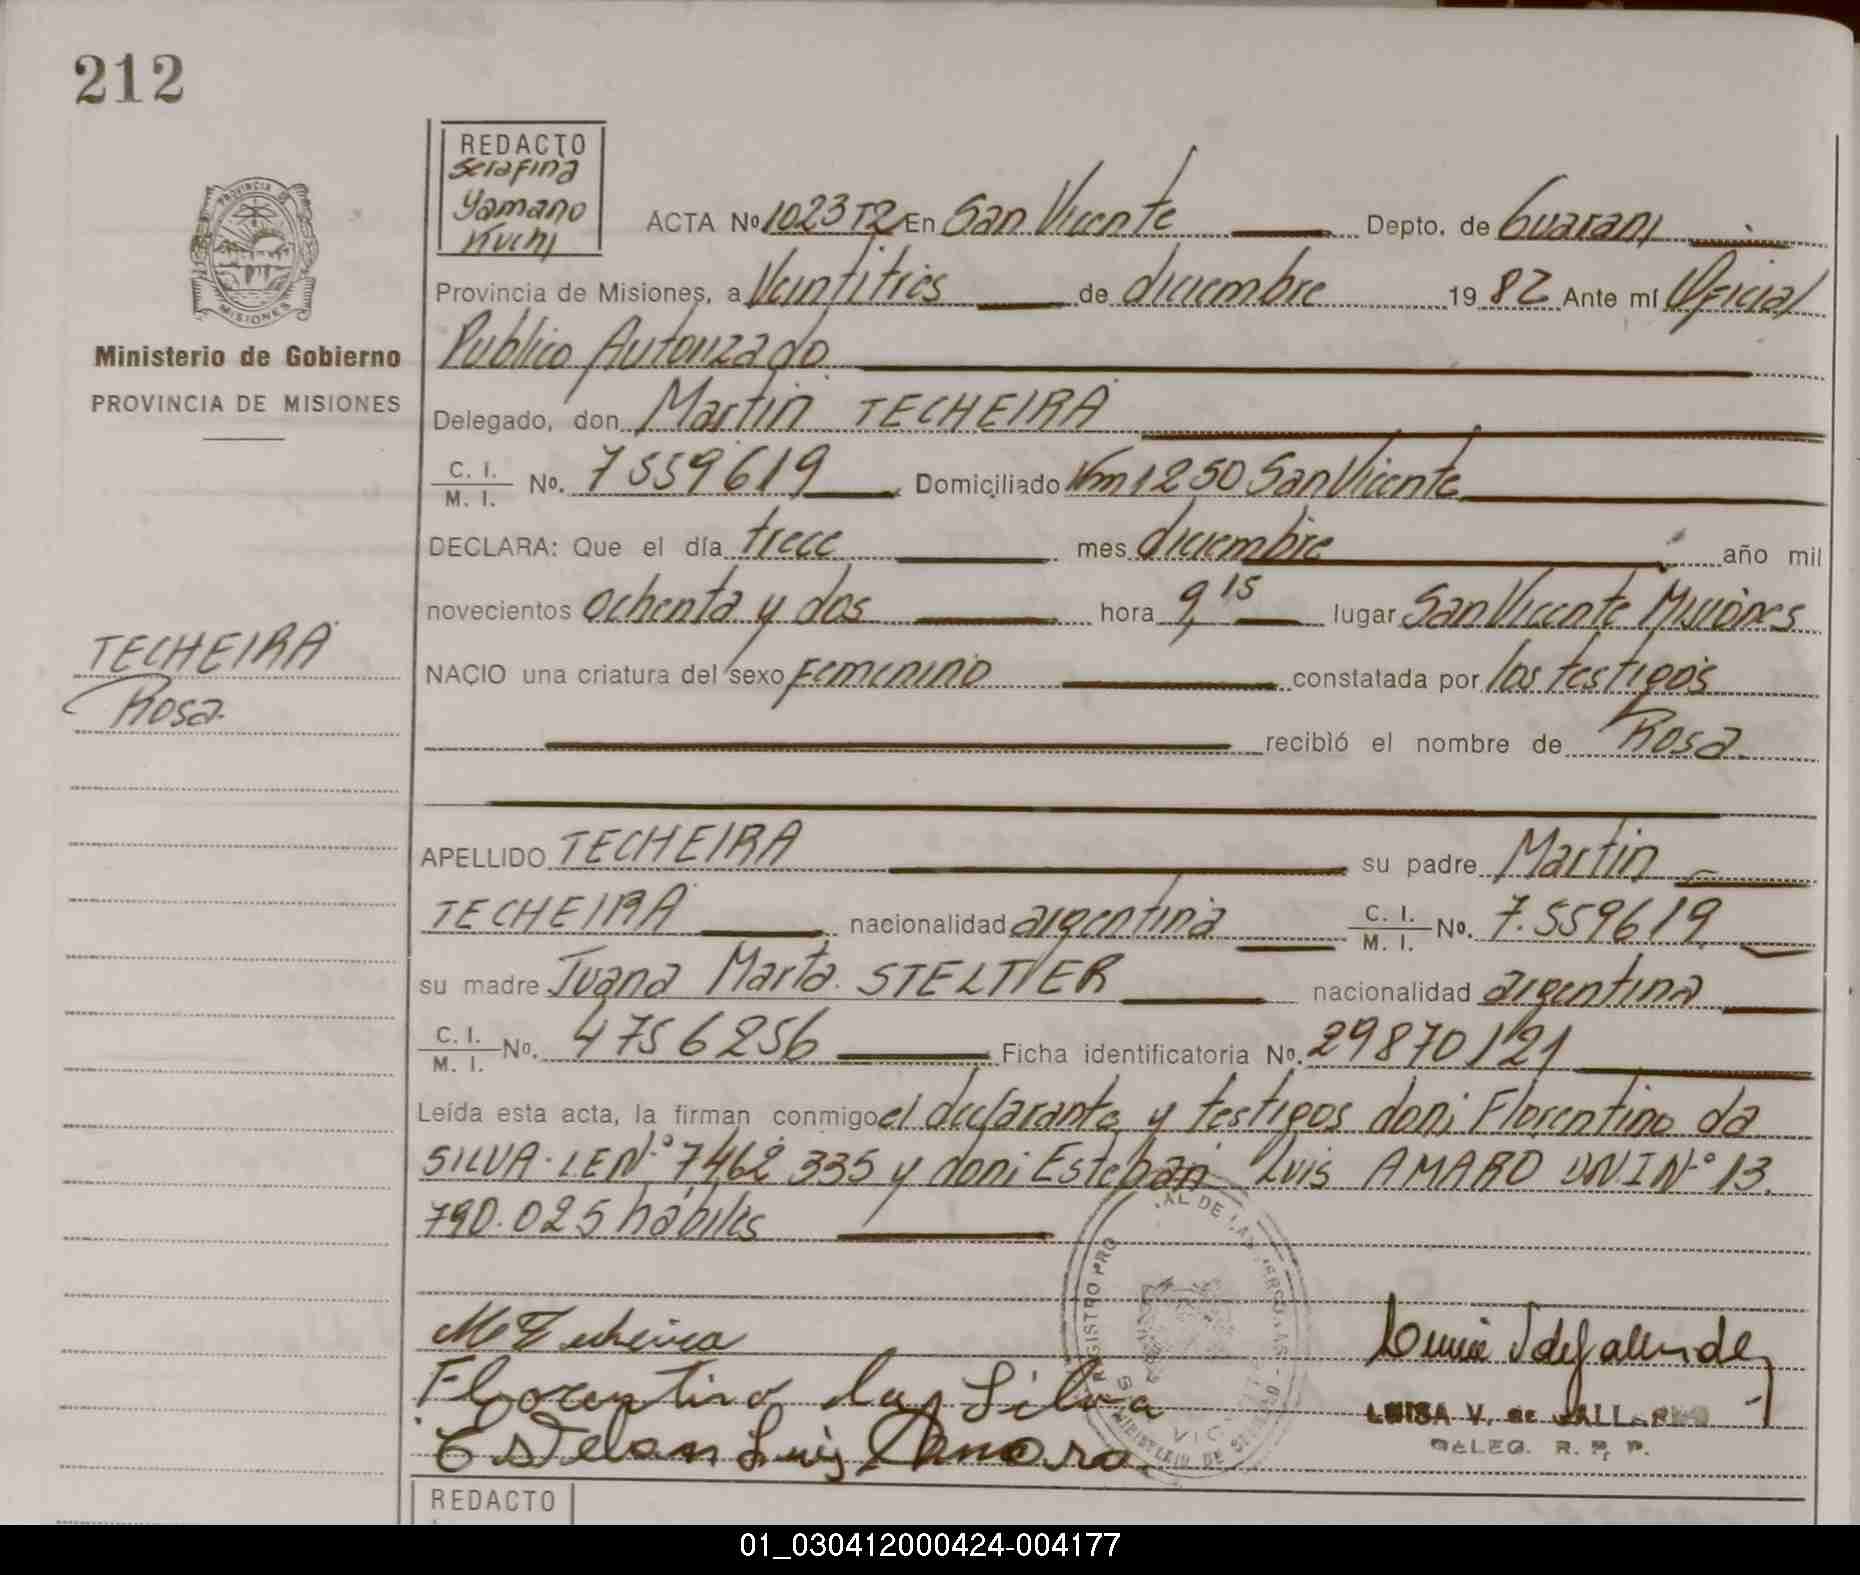 212
REDACTO
Serafina
Yamano
Kuchj
PROVINCIA DE
MISIONES
Ministerio de Gobierno
PROVINCIA DE MISIONES
ACTA Nº 1023 T2 En San Vicente Depto. de Guarani
Provincia de Misiones, a Veintitrés de diciembre 1982 Ante mí Oficial
Publico Autorizado
Delegado, don Martin TECHEIRA
C. I. / M. I. Nº. 7559619 Domiciliado Km 1250 San Vicente
DECLARA: Que el día trece mes diciembre año mil
novecientos ochenta y dos hora 9,15 lugar San Vicente Misiones
TECHEIRA
Rosa
NACIO una criatura del sexo Femenino constatada por los testigos
recibió el nombre de Rosa
APELLIDO TECHEIRA su padre Martin
TECHEIRA nacionalidad argentina C. I. / M. I. Nº. 7.559619
su madre Juana Marta STELTTER nacionalidad argentina
C. I. / M. I. Nº. 4756256 Ficha identificatoria Nº. 29870121
Leída esta acta, la firman conmigo el declarante y testigos don: Florentino da
SILVA. LE Nº 7462335 y don: Esteban Luis AMARO DNI Nº 13.
790.025 hábiles
M Techeira
Florentino da Silva
Esteban Luis Amaro
REGISTRO PRO AL DE LAS PERSONAS
MINISTERIO DE
LUISA V. de GALLARDO
DELEG. R. P. P.
REDACTO
01_030412000424-004177